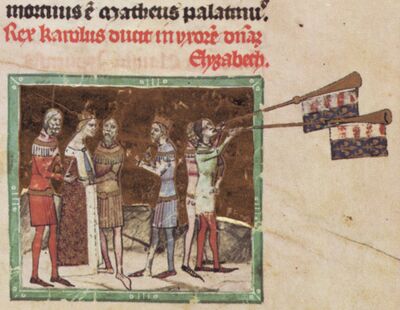 mortuus ē Matheus palatinuꝰ.
Rex karolus ducit in vxorē dn̄aꝫ
Elyzabeth.